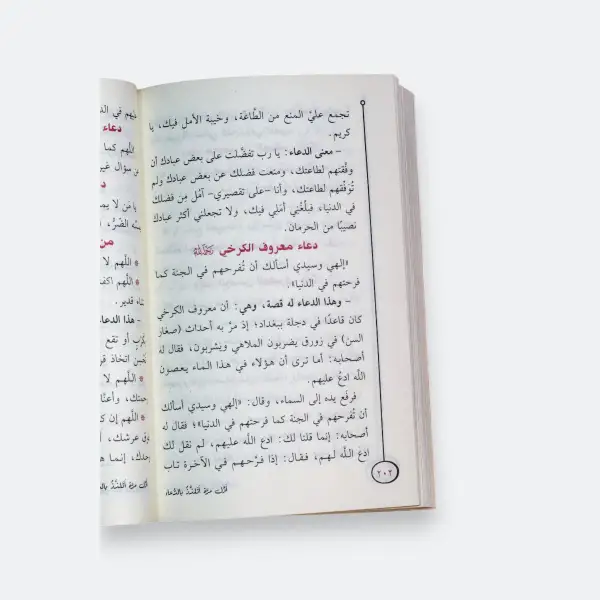 تجمع عليَّ المنع من الطَّاعَة، وخَيبة الأمل فيك، يا
كريم.
– معنى الدعاء: يا رب تفضَّلت على بعض عبادك أن
وفَّقتهم لطاعتك، ومنعت فضلك عن بعض عبادك ولم
تُوَفِّقهم لطاعتك، وأنا –على تقصيري– آمُل مِن فضلك
في الدنيا، فبلِّغني أمَلي فيك، ولا تجعلني أكثر عبادك
نصيبًا من الحرمان.
دعاء معروف الكرخي
«إلهي وسيدي أسألك أن تُفرحهم في الجنة كما
فرحتهم في الدنيا».
– وهذا الدعاء له قصة، وهي: أن معروف الكرخي
كان قاعدًا في دجلة ببغداد؛ إذ مرَّ به أحداث (صغار
السن) في زورق يضربون الملاهي ويشربون، فقال له
أصحابه: أما ترى أن هؤلاء في هذا الماء يعصون
الله ادعُ عليهم.
فرفع يده إلى السماء، وقال: «إلهي وسيدي أسألك
أن تُفرحهم في الجنة كما فرحتهم في الدنيا»؛ فقال له
أصحابه: إنما قلنا لك: ادع الله عليهم، لم نقل لك
ادعُ الله لهم، فقال: إذا فرَّحهم في الآخرة تاب
٢٠٢
أول مرة أتلذَّذُ بالدُّعاء
دعاء
اللهم كما
من سؤال غير
يا مَن لا
من
* اللهم لا
* اللهم
– هذا الدعاء
أو تقع
اتخاذ
* اللهم لا
* اللهم إن
عرشك،
إنما
أول مرة أتلذَّذُ